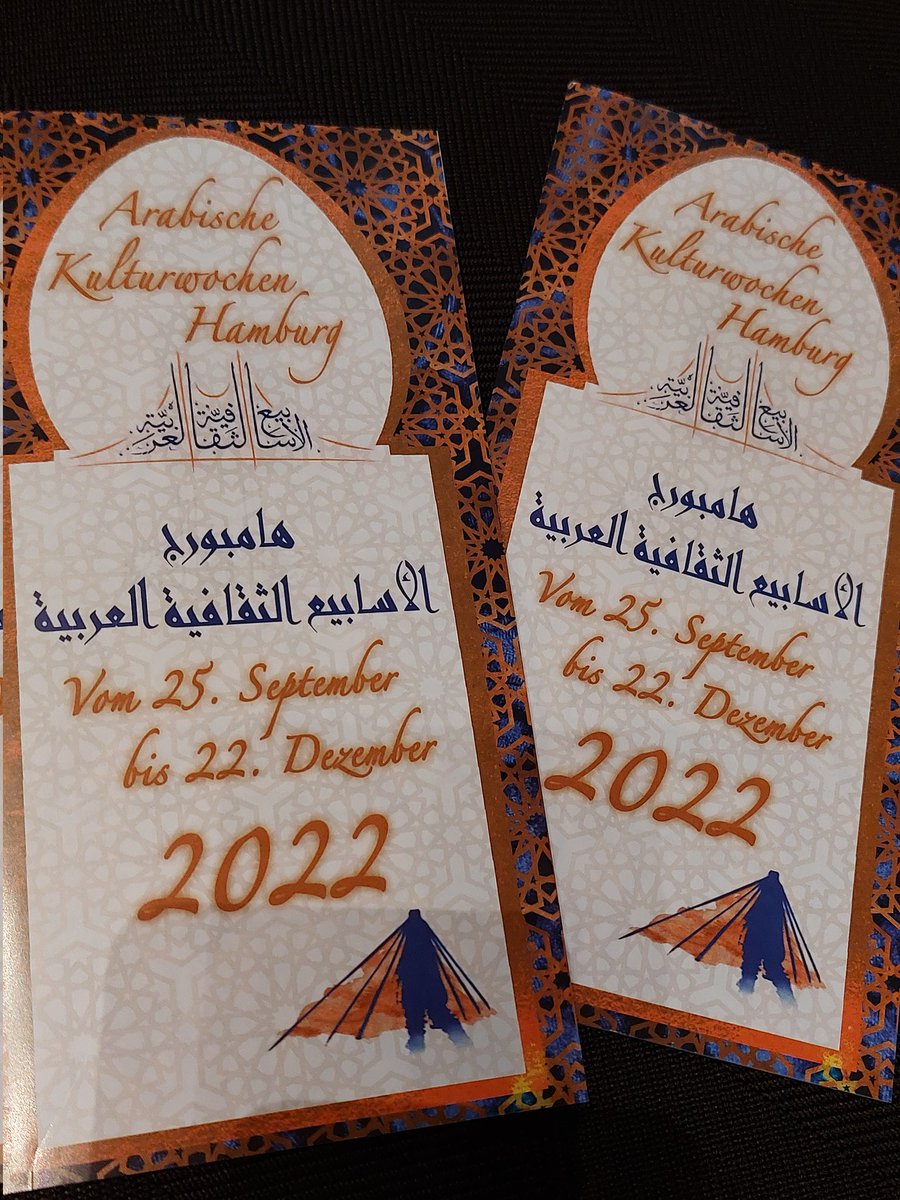 Arabische
Kulturwochen
Hamburg
الأسابيع الثقافيّة العربيّة
هامبورج
الأسابيع الثقافية العربية
Vom 25. September
bis 22. Dezember
2022
Arabische
Kulturwochen
Hamburg
الأسابيع الثقافيّة العربيّة
هامبورج
الأسابيع الثقافية العربية
Vom 25. September
bis 22. Dezember
2022